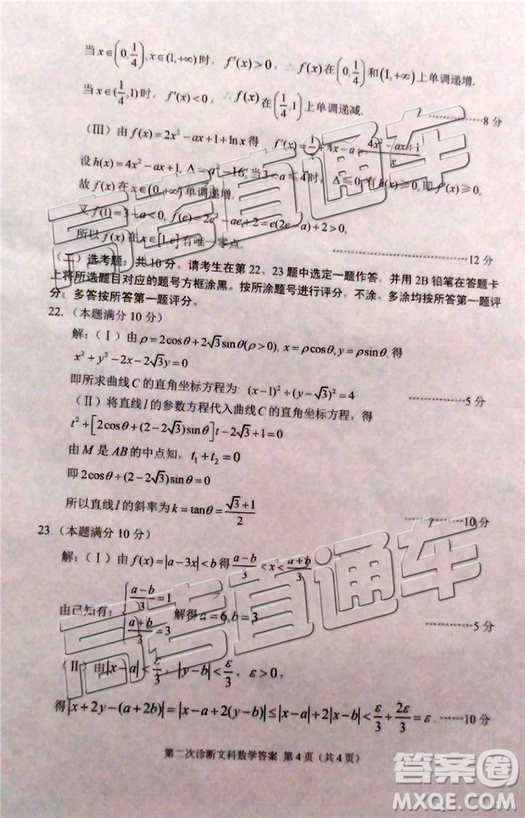 当 x∈(0, 1/4), x∈(1,+∞)时，f′(x)>0，∴f(x)在(0, 1/4)和(1,+∞)上单调递增.
当 x∈(1/4,1)时，f′(x)<0，∴f(x)在(1/4,1)上单调递减. ……………8分
(Ⅲ) 由 f(x)=2x²-ax+1+lnx 得，f′(x)=
设 h(x)=4x²-ax+1, Δ=a²-16, 当3<a≤4时，Δ≤0, 有h(x)≥0, 即f′(x)≥0,
故 f(x) 在 x∈(0,+∞)单调递增.
又 f(1)=3-a<0, f(e)=2e²-ae+2=e(2e-a)+2>0,
所以 f(x) 在 x∈[1,e]有唯一零点. ……………12分
(二) 选考题：共10分，请考生在第22、23题中选定一题作答，并用2B铅笔在答题卡
上将所选题目对应的题号方框涂黑。按所涂题号进行评分，不涂、多涂均按所答第一题评
分；多答按所答第一题评分。
22.（本题满分10分）
解:(Ⅰ) 由 ρ=2cosθ+2√3sinθ(ρ>0), x=ρcosθ, y=ρsinθ, 得
x²+y²-2x-2√3y=0
即所求曲线C的直角坐标方程为 (x-1)²+(y-√3)²=4 ……………5分
(Ⅱ) 将直线l的参数方程代入曲线C的直角坐标方程，得
t²+[2cosθ+(2-2√3)sinθ]t-2√3+1=0
由 M 是 AB 的中点知，t₁+t₂=0
即 2cosθ+(2-2√3)sinθ=0
所以直线l的斜率为 k=tanθ=(√3+1)/2 ……………10分
23（本题满分10分）
解:(Ⅰ) 由 f(x)=|a-3x|<b 得 (a-b)/3<x<(a+b)/3
由已知有: {(a-b)/3=1, (a+b)/3=3 解得 a=6, b=3 ……………5分
(Ⅱ) 由 |x-a|<ε/3, |y-b|<ε/3, ε>0,
得 |x+2y-(a+2b)|=|x-a+2(y-b)|≤|x-a|+2|x-b|<ε/3+2ε/3=ε. ……10分
第二次诊断文科数学答案 第4页（共4页）
高考直通车
高考直通车
答案圈
MXQE.COM